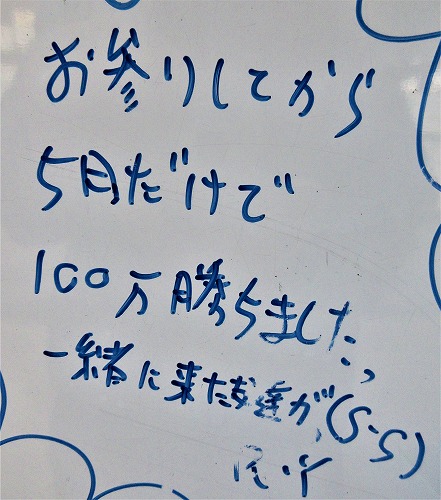 お参りしてから
5月だけで
100万勝ちました
一緒に来た友達が(S・S)
R・Y